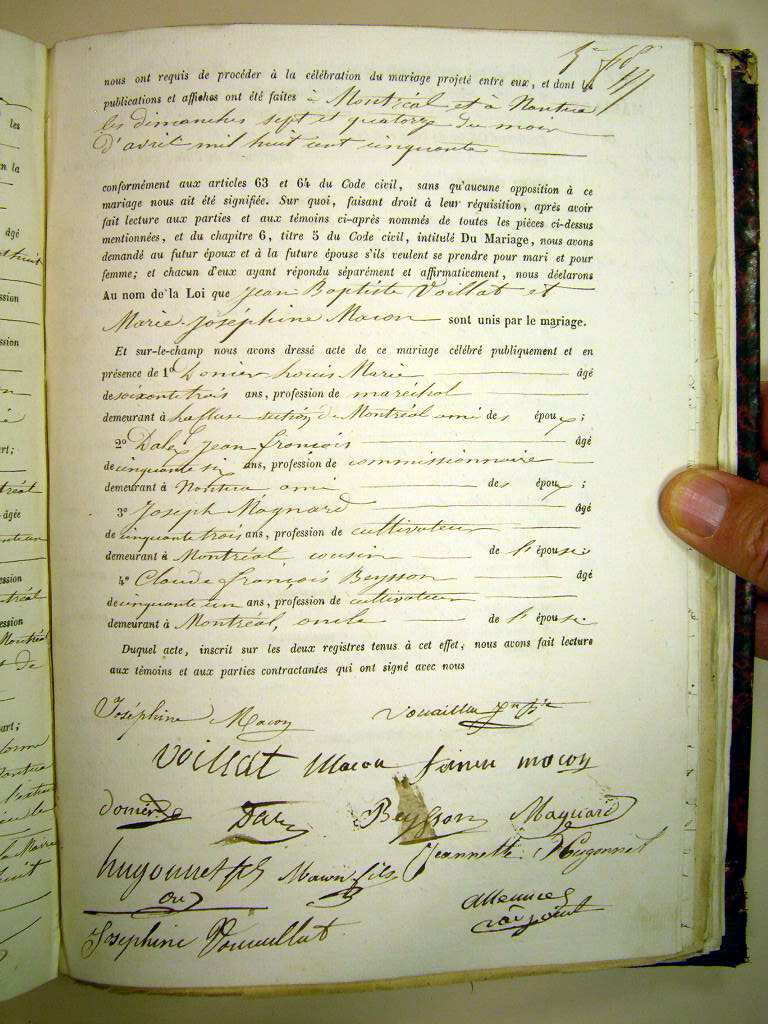 nous ont requis de procéder à la célébration du mariage projeté entre eux, et dont les
publications et affiches ont été faites à Montréal et à Nantua
les dimanches sept et quatorze du mois
D'avril mil huit cent cinquante
conformément aux articles 63 et 64 du Code civil, sans qu'aucune opposition à ce
mariage nous ait été signifiée. Sur quoi, faisant droit à leur réquisition, après avoir
fait lecture aux parties et aux témoins ci-après nommés de toutes les pièces ci-dessus
mentionnées, et du chapitre 6, titre 5 du Code civil, intitulé Du Mariage, nous avons
demandé au futur époux et à la future épouse s'ils veulent se prendre pour mari et pour
femme; et chacun d'eux ayant répondu séparément et affirmativement, nous déclarons
Au nom de la Loi que Jean Baptiste Voillat et
Marie Joséphine Macon sont unis par le mariage.
Et sur-le-champ nous avons dressé acte de ce mariage célébré publiquement et en
présence de 1º Donier Louis Marie âgé
de soixante trois ans, profession de maréchal
demeurant à Lafluse section de Montréal ami des époux;
2º Dalex Jean françois âgé
de cinquante six ans, profession de commissionnaire
demeurant à Nantua ami des époux;
3º Joseph Magnard âgé
de cinquante trois ans, profession de cultivateur
demeurant à Montréal cousin de l'épouse;
4º Claude françois Beysson âgé
de cinquante un ans, profession de cultivateur
demeurant à Montréal, oncle de l'épouse
Duquel acte, inscrit sur les deux registres tenus à cet effet, nous avons fait lecture
aux témoins et aux parties contractantes qui ont signé avec nous
Joséphine Macon
Voillat Macon macon
Beysson Magniard
hugonnet fils Macon fils Jeannette Hugonnet
Joséphine Vouaillat